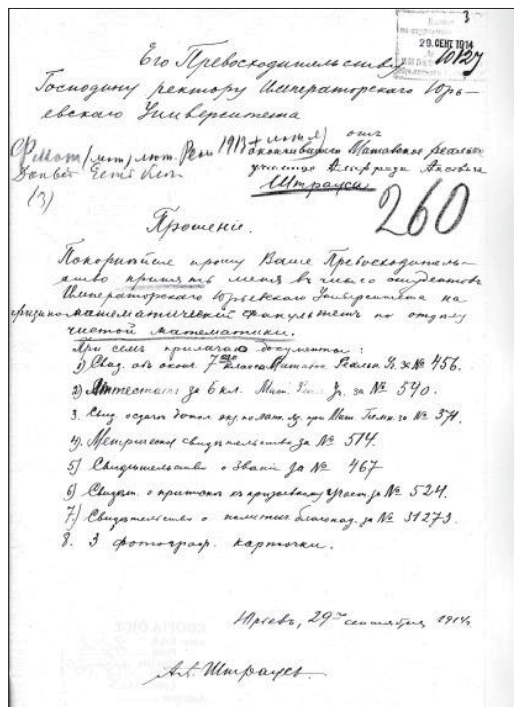 3
29 СЕНТ 1914
10127
Его Превосходительству
Господину ректору Императорскаго Юрь-
евскаго Университета
отъ
окончившаго Митавское реальн.
училище Альфреда
Штрауса
(3)
260
Прошеніе.
Покорнѣйше прошу Ваше Превосходитель-
ство принять меня въ число студентовъ
Императорскаго Юрьевскаго Университета на
физико-математическій факультетъ по отдѣлу
чистой математики.
При семъ прилагаю документы:
1) Свид. объ оконч. 7 класса Митавск. Реальн. Уч. за № 456.
2) Аттестатъ за 6 кл. Мит. Реал. Уч. за № 540.
3. Свид. о сдачѣ допол. экз. по лат. яз. при Мит. Гимн. за № 574.
4) Метрическое свидѣтельство за № 514.
5) Свидѣтельство о званіи за № 467
6) Свидѣт. о припискѣ къ призывному участ. за № 524.
7) Свидѣтельство о политич. благонад. за № 31273.
8. 3 фотограф. карточки.
Юрьевъ, 29го сентября 1914 г.
Ал. Штраусъ.
KOOPIA ÕIGE